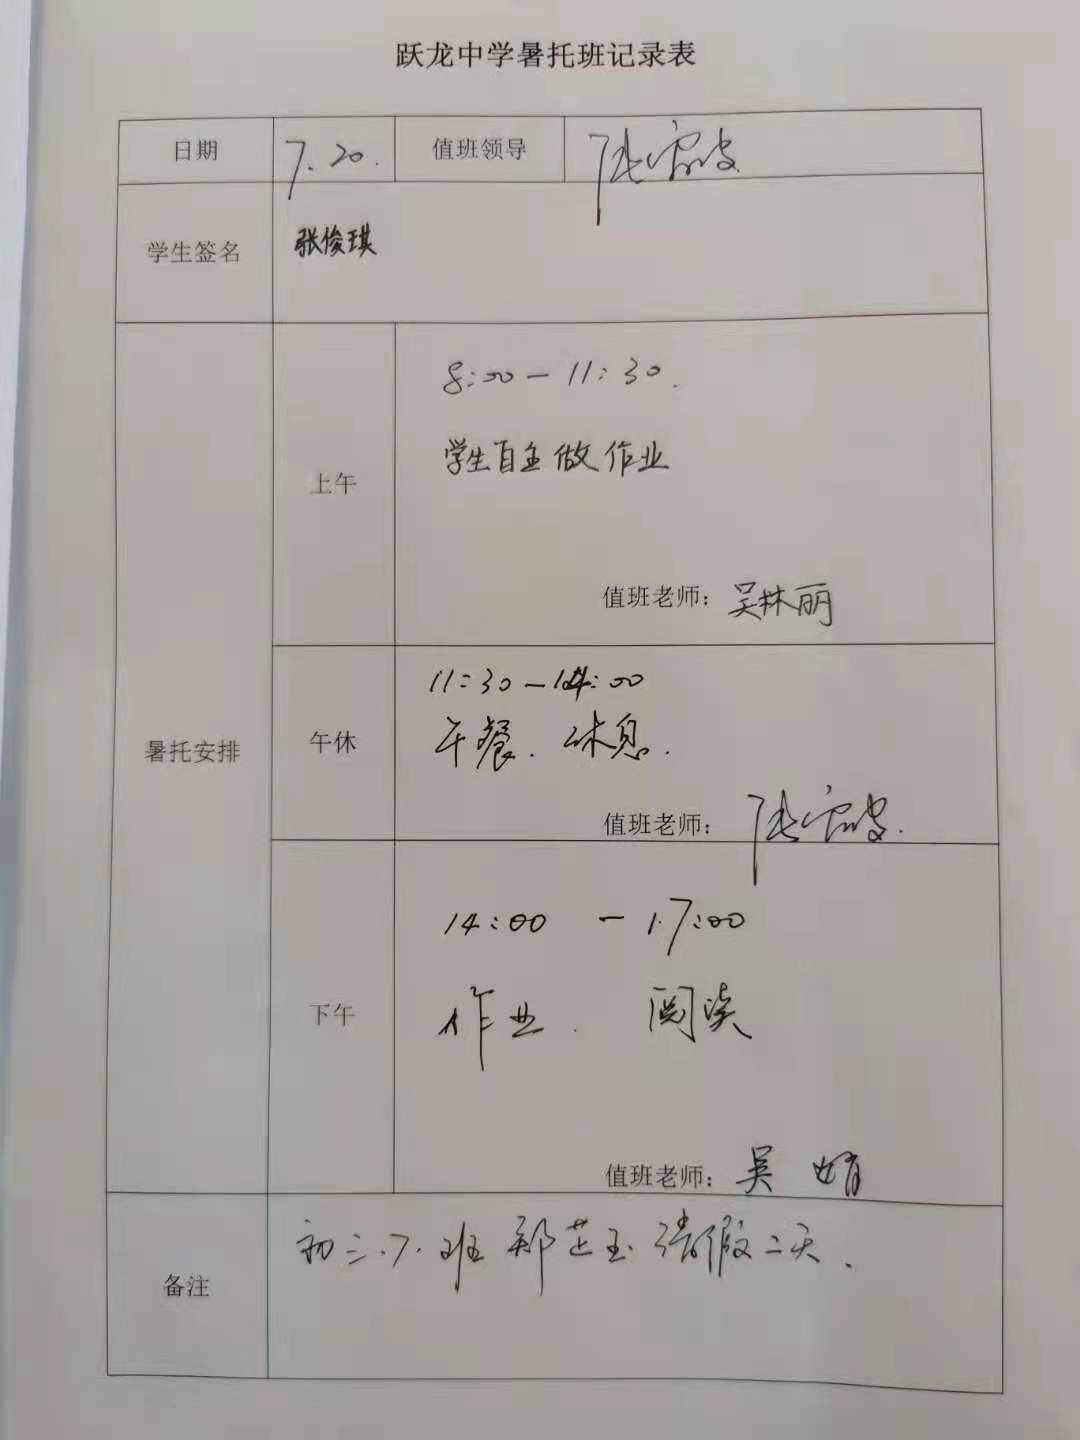 跃龙中学暑托班记录表
日期 7.20. 值班领导
学生签名 张俊琪
暑托安排
上午
8:00—11:30.
学生自主做作业
值班老师：吴林丽
午休
11:30—14:00
午餐．休息．
值班老师：
下午
14:00 — 17:00
作业． 阅读
值班老师：吴娟
备注
初三.7.班 郑芷玉 请假二天．